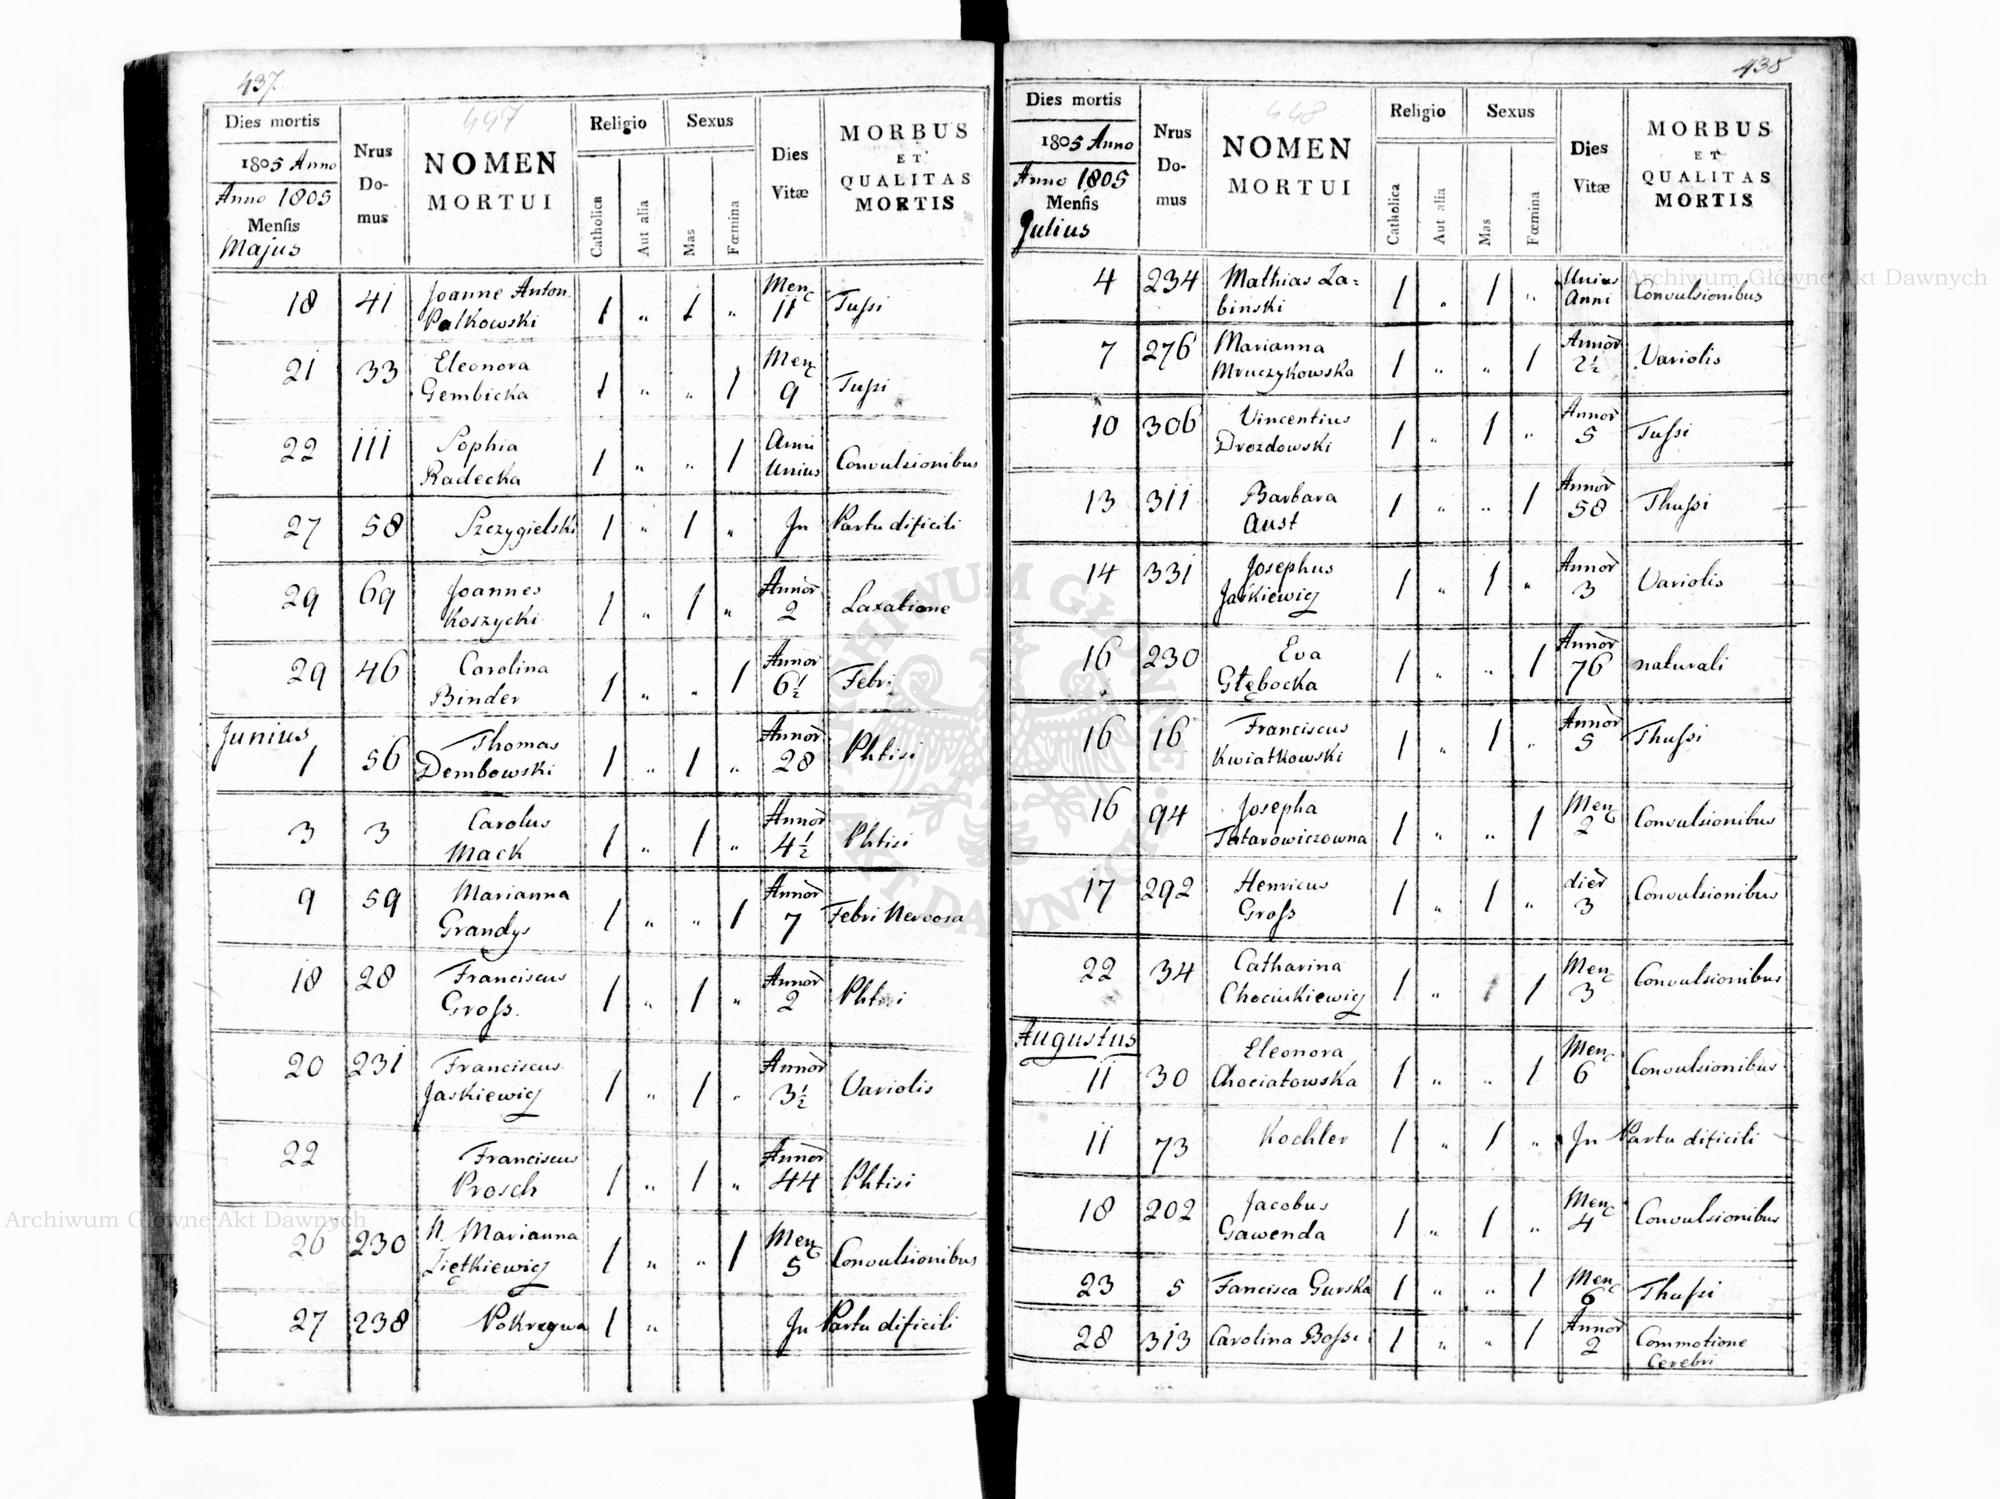 437.
447
Dies mortis
1805 Anno
Anno 1805
Mensis
Majus
Nrus
Do-
mus
NOMEN
MORTUI
Religio
Catholica
Aut alia
Sexus
Mas
Fœmina
Dies
Vitæ
MORBUS
ET
QUALITAS
MORTIS
18 41 Joanne Anton. Men. 11 Tussi
Palkowski 1 " 1 "
21 33 Eleonora Men. 9 Tussi
Gembicka 1 " " 1
22 111 Sophia Anni Unius Convulsionibus
Radecka 1 " " 1
27 58 Szczygielski 1 " 1 " In Partu dificili
29 69 Joannes Annor 2 Laxatione
Koszycki 1 " 1 "
29 46 Carolina Annor 6½ Febri
Binder 1 " " 1
Junius
1 56 Thomas Annor 28 Phtisi
Dembowski 1 " 1 "
3 3 Carolus Annor 4½ Phtisi
Mack 1 " 1 "
9 59 Marianna Annor 7 Febri Nervosa
Grandys 1 " " 1
18 28 Franciscus Annor 2 Phtisi
Gross. 1 " 1 "
20 231 Franciscus Annor 3½ Variolis
Jaskiewicz 1 " 1 "
22 Franciscus Annor 44 Phtisi
Prosch 1 " 1 "
26 230 N. Marianna Men. 5 Convulsionibus
Ziętkiewicz 1 " " 1
27 238 Pokrzywa 1 " In Partu dificili
438
448
Dies mortis
1805 Anno
Anno 1805
Mensis
Julius
Nrus
Do-
mus
NOMEN
MORTUI
Religio
Catholica
Aut alia
Sexus
Mas
Fœmina
Dies
Vitæ
MORBUS
ET
QUALITAS
MORTIS
4 234 Mathias Za= Unius Anni Convulsionibus
binski 1 " 1 "
7 276 Marianna Annor 2½ Variolis
Mruczykowska 1 " " 1
10 306 Vincentius Annor 5 Tussi
Drozdowski 1 " 1 "
13 311 Barbara Annor 58 Thussi
Aust 1 " " 1
14 331 Josephus Annor 3 Variolis
Jaśkiewicz 1 " 1 "
16 230 Eva Annor 76 naturali
Głębocka 1 " " 1
16 16 Franciscus Annor 5 Thussi
Kwiatkowski 1 " 1 "
16 94 Josepha Men. 2 Convulsionibus
Tatarowiczowna 1 " " 1
17 292 Henricus dier 3 Convulsionibus
Gross 1 " 1 "
22 34 Catharina Men. 3 Convulsionibus
Chociukiewicz 1 " 1
Augustus
11 30 Eleonora Men. 6 Convulsionibus
Chociatowska 1 " " 1
11 73 Kochler 1 " 1 " In Partu dificili
18 202 Jacobus Men. 4 Convulsionibus
Gawenda 1 " 1 "
23 5 Fancisca Gurska 1 " " 1 Men. 6 Thussi
28 313 Carolina 1 " " 1 Annor 2 Commotione
Cerebri
Archiwum Główne Akt Dawnych
Archiwum Główne Akt Dawnych
ARCHIWUM GŁÓWNE AKT DAWNYCH